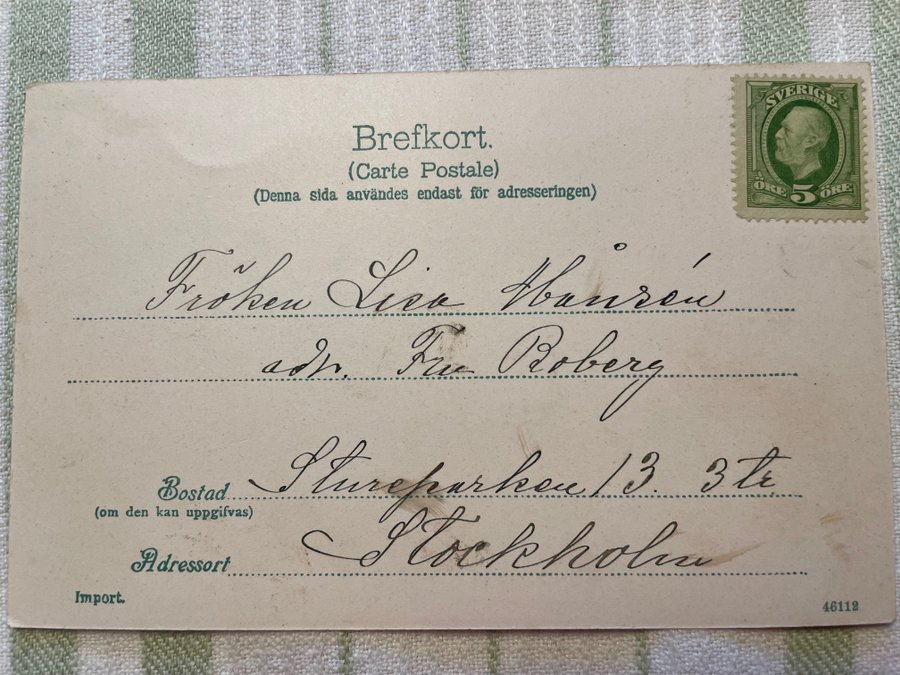 Brefkort.
(Carte Postale)
(Denna sida användes endast för adresseringen)
SVERIGE
5
ÖRE ÖRE
Fröken Lisa Månsén
adr. Fru Roberg
Bostad Stureparken 13. 3 tr.
(om den kan uppgifvas)
Adressort Stockholm
Import.
46112